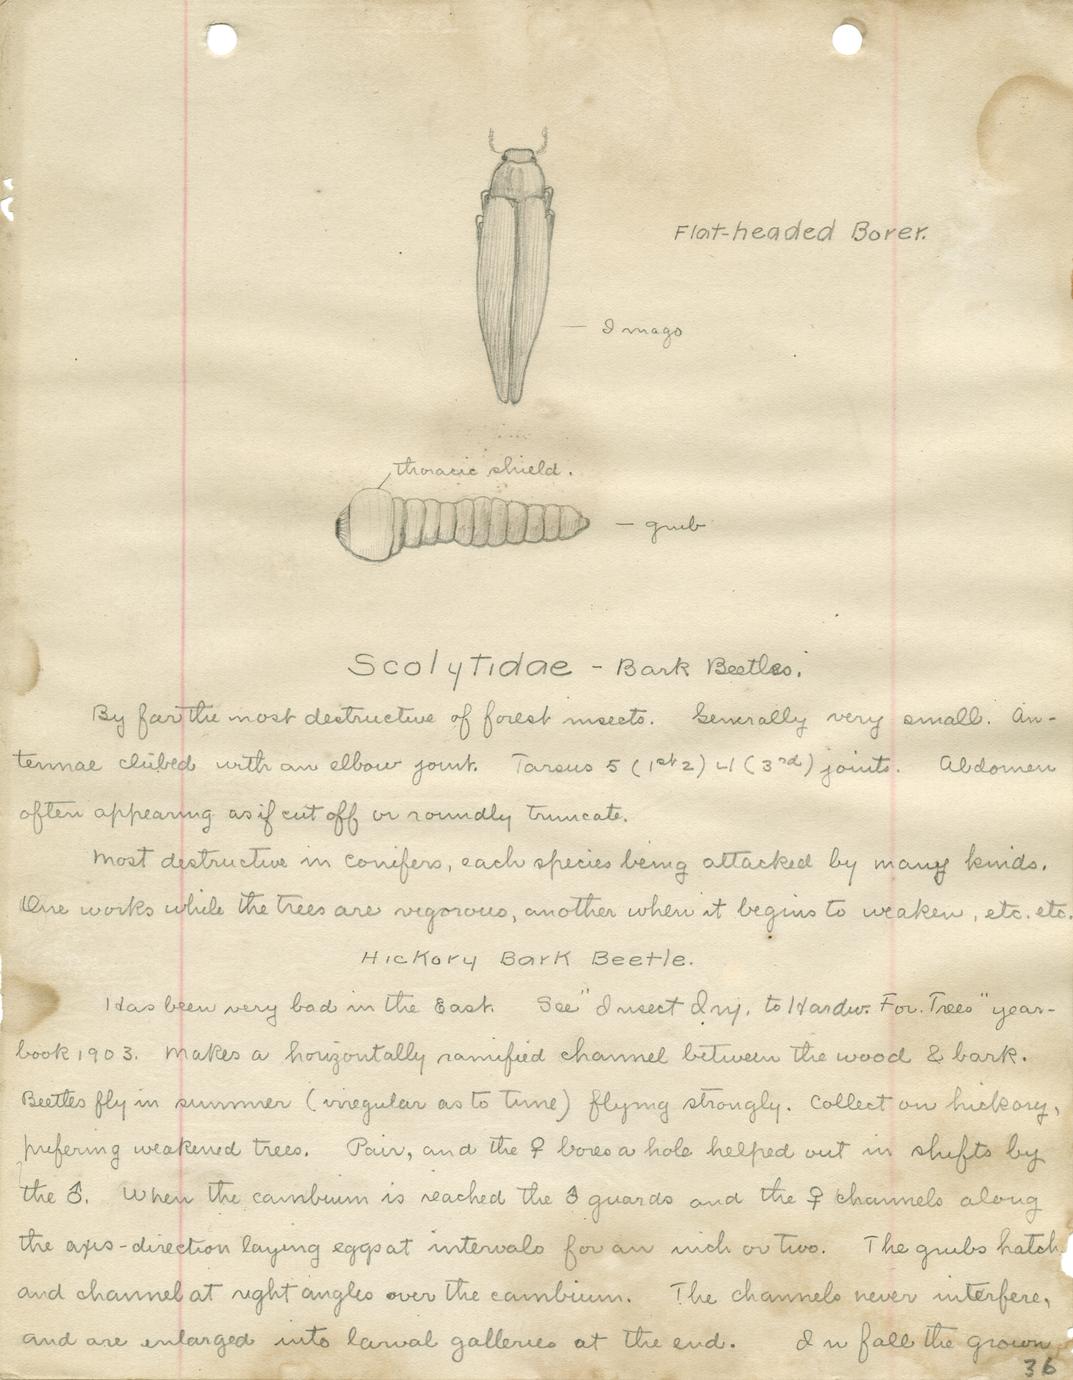 Flat-headed Borer.
— Imago
thoracic shield.
— grub
Scolytidae - Bark Beetles.
By far the most destructive of forest insects. Generally very small. An-
tennae clubed with an elbow joint. Tarsus 5 (1st 2) 4 (3rd) joints. Abdomen
often appearing as if cut off or roundly truncate.
Most destructive in conifers, each species being attacked by many kinds.
One works while the trees are vigorous, another when it begins to weaken, etc. etc.
Hickory Bark Beetle.
Has been very bad in the East. See "Insect Inj. to Hardw. For. Trees" year-
book 1903. Makes a horizontally ramified channel between the wood & bark.
Beetles fly in summer (irregular as to time) flying strongly. Collect on hickory,
prefering weakened trees. Pair, and the ♀ bores a hole helped out in shifts by
the ♂. When the cambium is reached the ♂ guards and the ♀ channels along
the axis-direction laying eggs at intervals for an inch or two. The grubs hatch
and channel at right angles over the cambium. The channels never interfere,
and are enlarged into larval galleries at the end. In fall the grown
36